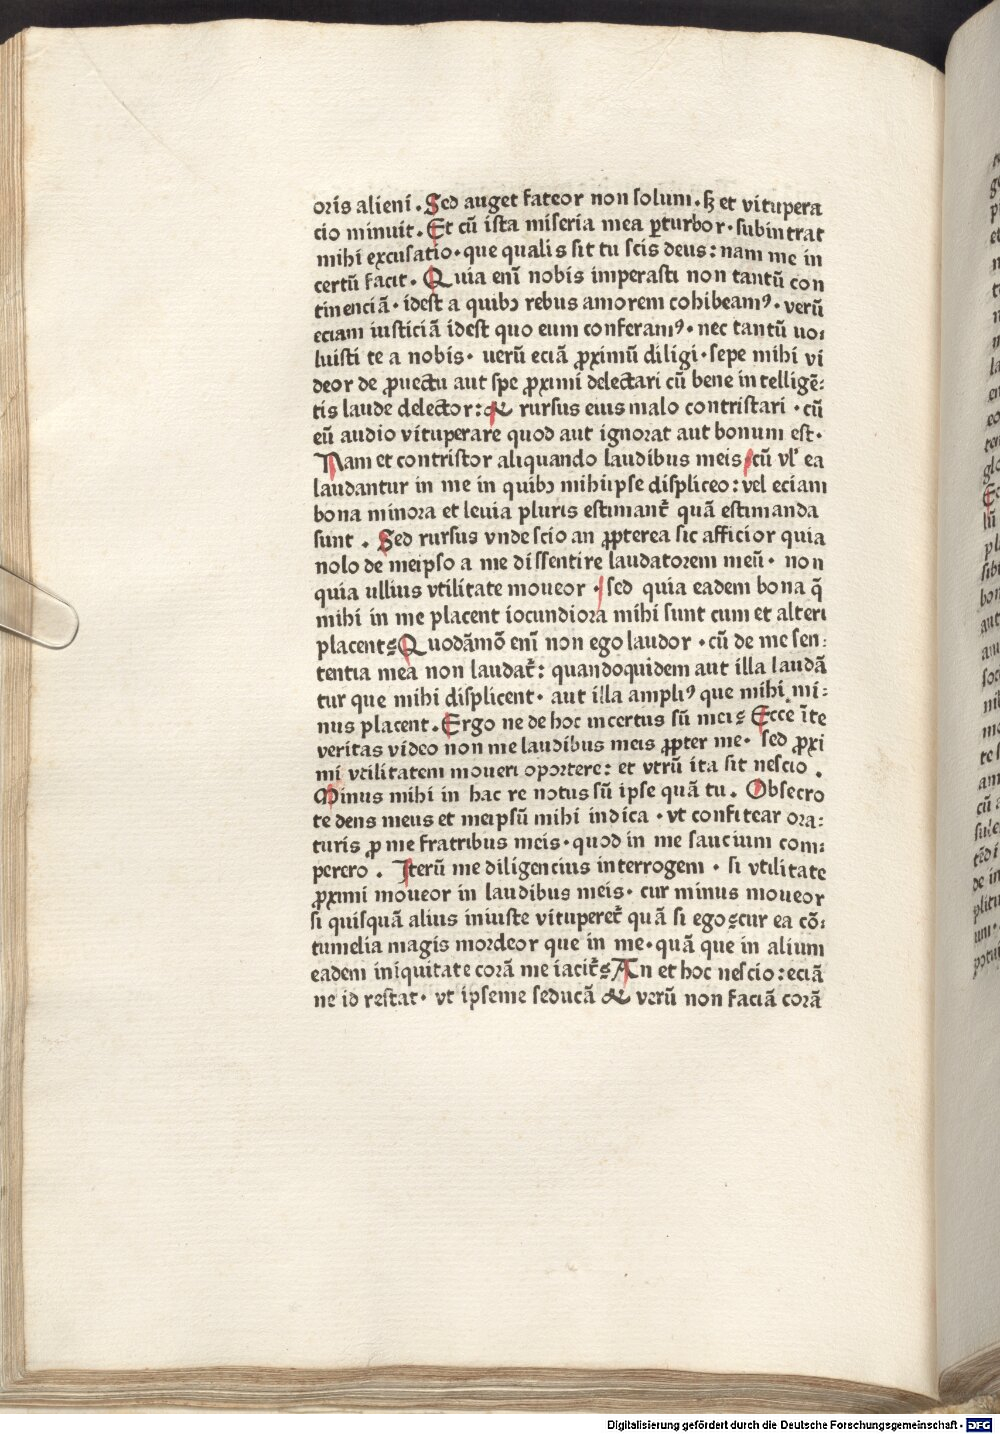 oris alieni . Sed auget fateor non solum . ꝫ et vitupera
cio minuit . Et cũ ista miseria mea ꝑturbor · subintrat
mihi excusatio · que qualis sit tu scis deus : nam me in
certũ facit . Quia enĩ nobis imperasti non tantũ con
tinenciã · idest a quibꝫ rebus amorem cohibeamꝰ · verũ
eciam iusticiã idest quo eum conferamꝰ · nec tantũ uo:
luisti te a nobis · uerũ eciã ꝓximũ diligi · sepe mihi vi
deor de ꝓuectu aut spe ꝓximi delectari cũ bene intelligẽ:
tis laude delector : & rursus eius malo contristari · cũ
eũ audio vituperare quod aut ignorat aut bonum est ·
Nam et contristor aliquando laudibus meis · cũ vl' ea
laudantur in me in quibꝫ mihiipse displiceo : vel eciam
bona minora et leuia pluris estimant᷑ quã estimanda
sunt . Sed rursus vnde scio an ꝓpterea sic afficior quia
nolo de meipso a me dissentire laudatorem meũ · non
quia ullius vtilitate moueor · sed quia eadem bona q̃
mihi in me placent iocundiora mihi sunt cum et alteri
placent? Quodãmõ enĩ non ego laudor · cũ de me sen:
tentia mea non laudat᷑ : quandoquidem aut illa laudã
tur que mihi displicent · aut illa ampliꝰ que mihi mi:
nus placent . Ergo ne de hoc incertus sũ mei? Ecce ĩ te
veritas video non me laudibus meis ꝓpter me · sed ꝓxi
mi vtilitatem moueri oportere : et vtrũ ita sit nescio .
Minus mihi in hac re notus sũ ipse quã tu . Obsecro
te deus meus et meipsũ mihi indica · vt confitear ora:
turis ꝓ me fratribus meis · quod in me saucium com:
perero . Iterũ me diligencius interrogem · si vtilitate
ꝓximi moueor in laudibus meis · cur minus moueor
si quisquã alius iniuste vituperet᷑ quã si ego? cur ea cõ:
tumelia magis mordeor que in me · quã que in alium
eadem iniquitate corã me iacit᷑? An et hoc nescio : eciã
ne id restat · vt ipse me seducã & verũ non faciã corã
Digitalisierung gefördert durch die Deutsche Forschungsgemeinschaft - DFG